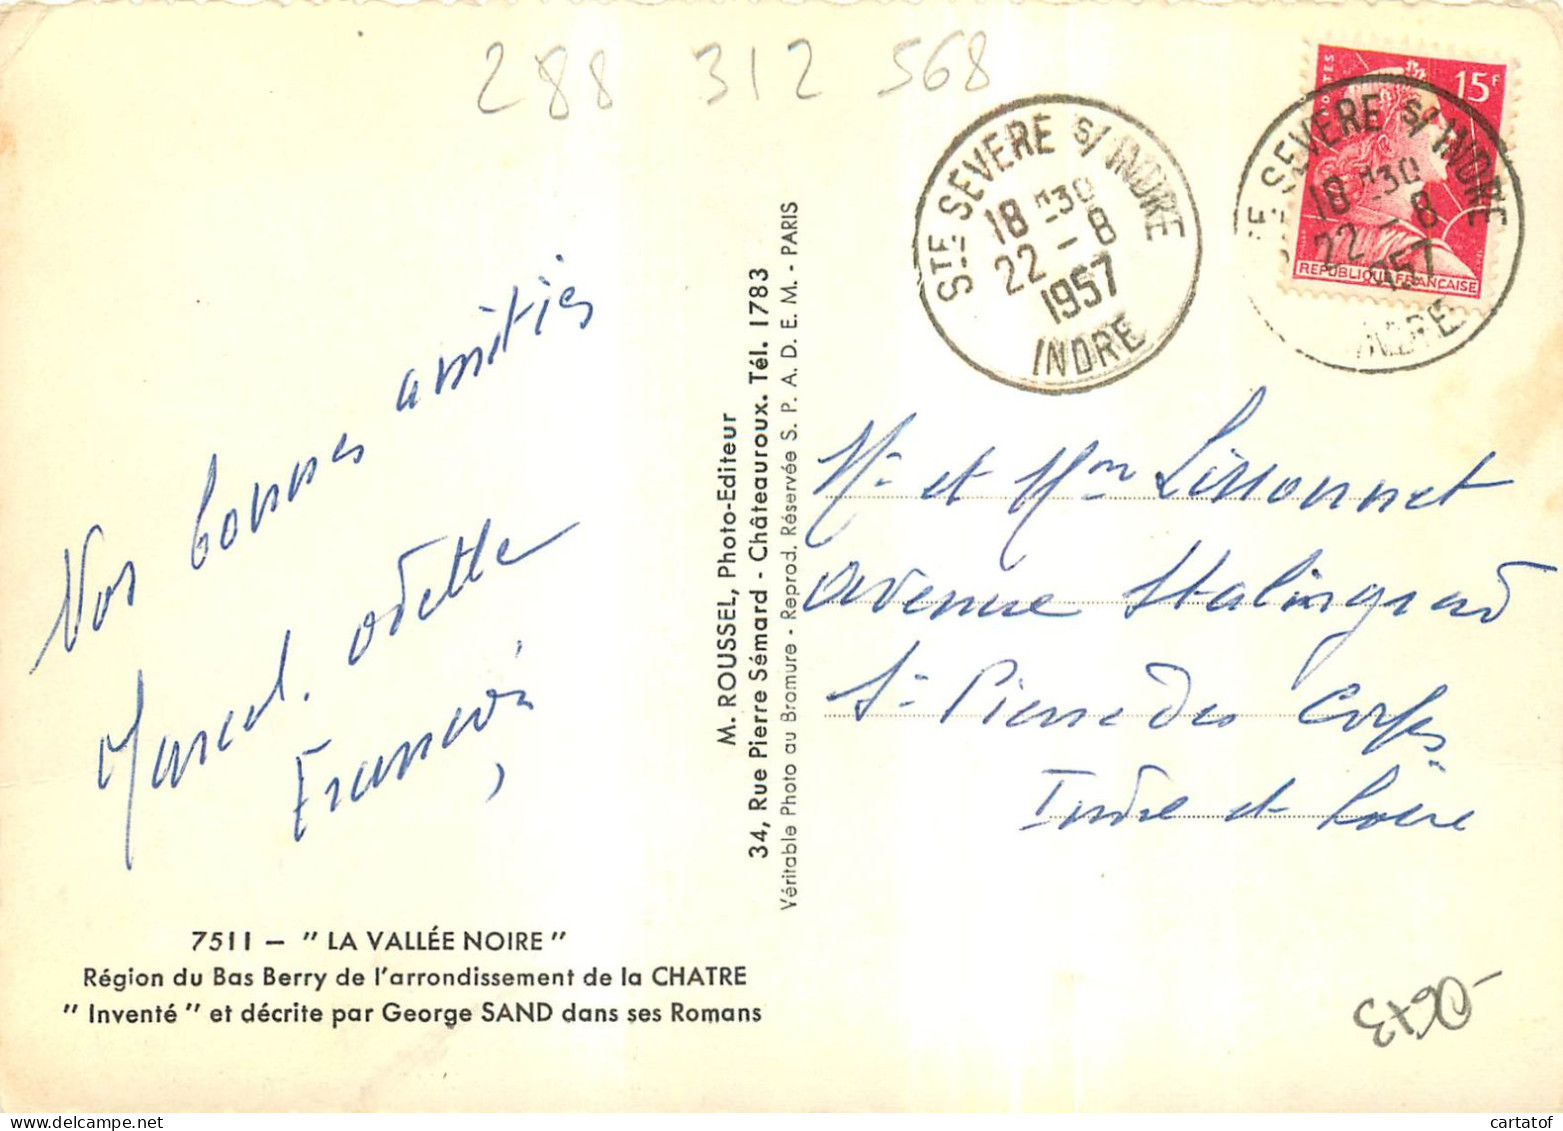 288 312 568
15F
POSTES
REPUBLIQUE FRANÇAISE
STE SEVERE S/ INDRE
18 H30
22 - 8
1957
INDRE
STE SEVERE S/ INDRE
18 H30
22 - 8
1957
INDRE
Nos bonnes amitiés
Marcel. Odette
Francis
M. ROUSSEL, Photo-Editeur
34, Rue Pierre Sémard - Châteauroux. Tél. 1783
Véritable Photo au Bromure - Reprod. Réservée S. P. A. D. E. M. - PARIS
Mr et Mme Lissonnet
Avenue Stalingrad
St Pierre des Corps
Indre et Loire
7511 — " LA VALLÉE NOIRE "
Région du Bas Berry de l'arrondissement de la CHATRE
" Inventé " et décrite par George SAND dans ses Romans
cartatof